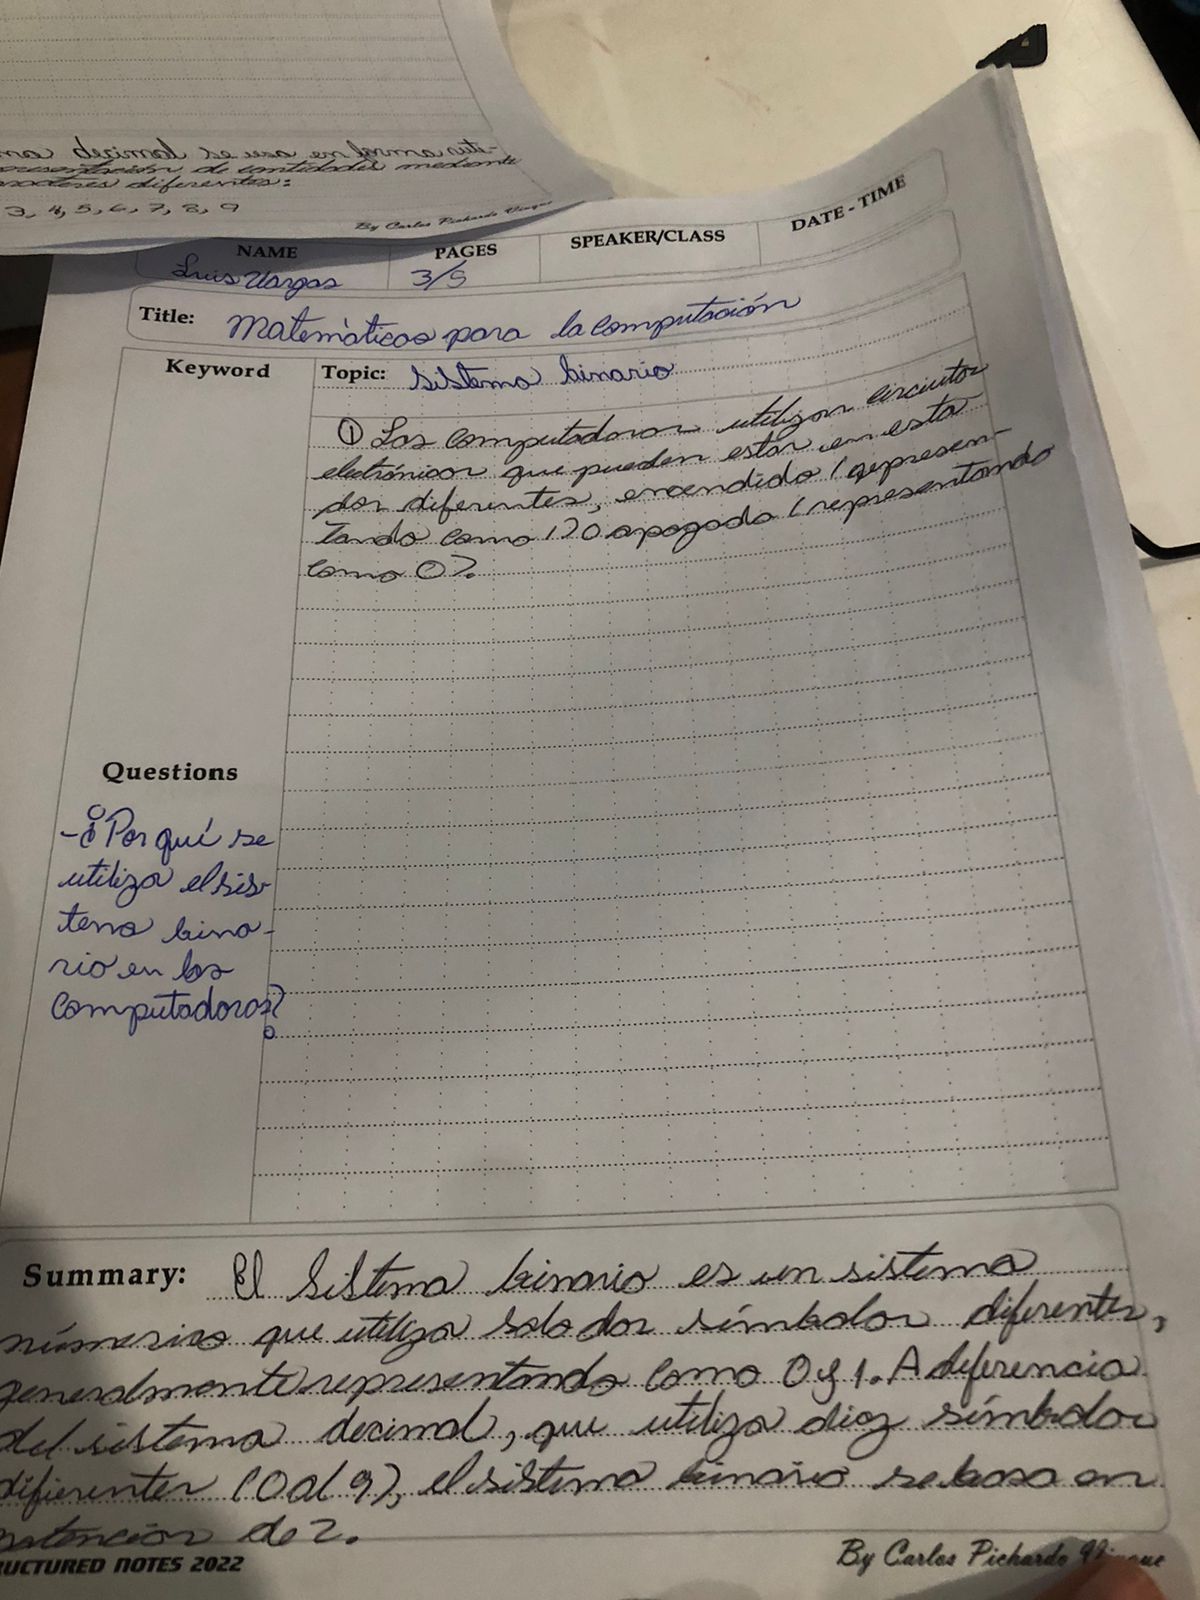 decimal es que en forma
presentación de cantidades mediante
diferentes:
3, 4, 5, 6, 7, 8, 9
By Carlos Pichardo Vinque
NAME
PAGES
SPEAKER/CLASS
DATE - TIME
Luis Vargas
3/5
Title: Matemàticas para la computación
Keyword
Topic: sistema binario
① Las computadoras utilizan circuitos
electrónicos que pueden estar en esta
dos diferentes, encendido (represen-
tando como 1) o apagado (representando
como 0).
Questions
- ¿Por qué se
utiliza el sis-
tema bina-
rio en las
computadoras?
Summary: El sistema binario es un sistema
númerico que utiliza solo dos símbolos diferentes,
generalmente representando como 0 y 1. A diferencia
del sistema decimal, que utiliza diez símbolos
difierentes (0 al 9), el sistema binario se basa en
potencias de 2.
RUCTURED NOTES 2022
By Carlos Pichardo Vinque